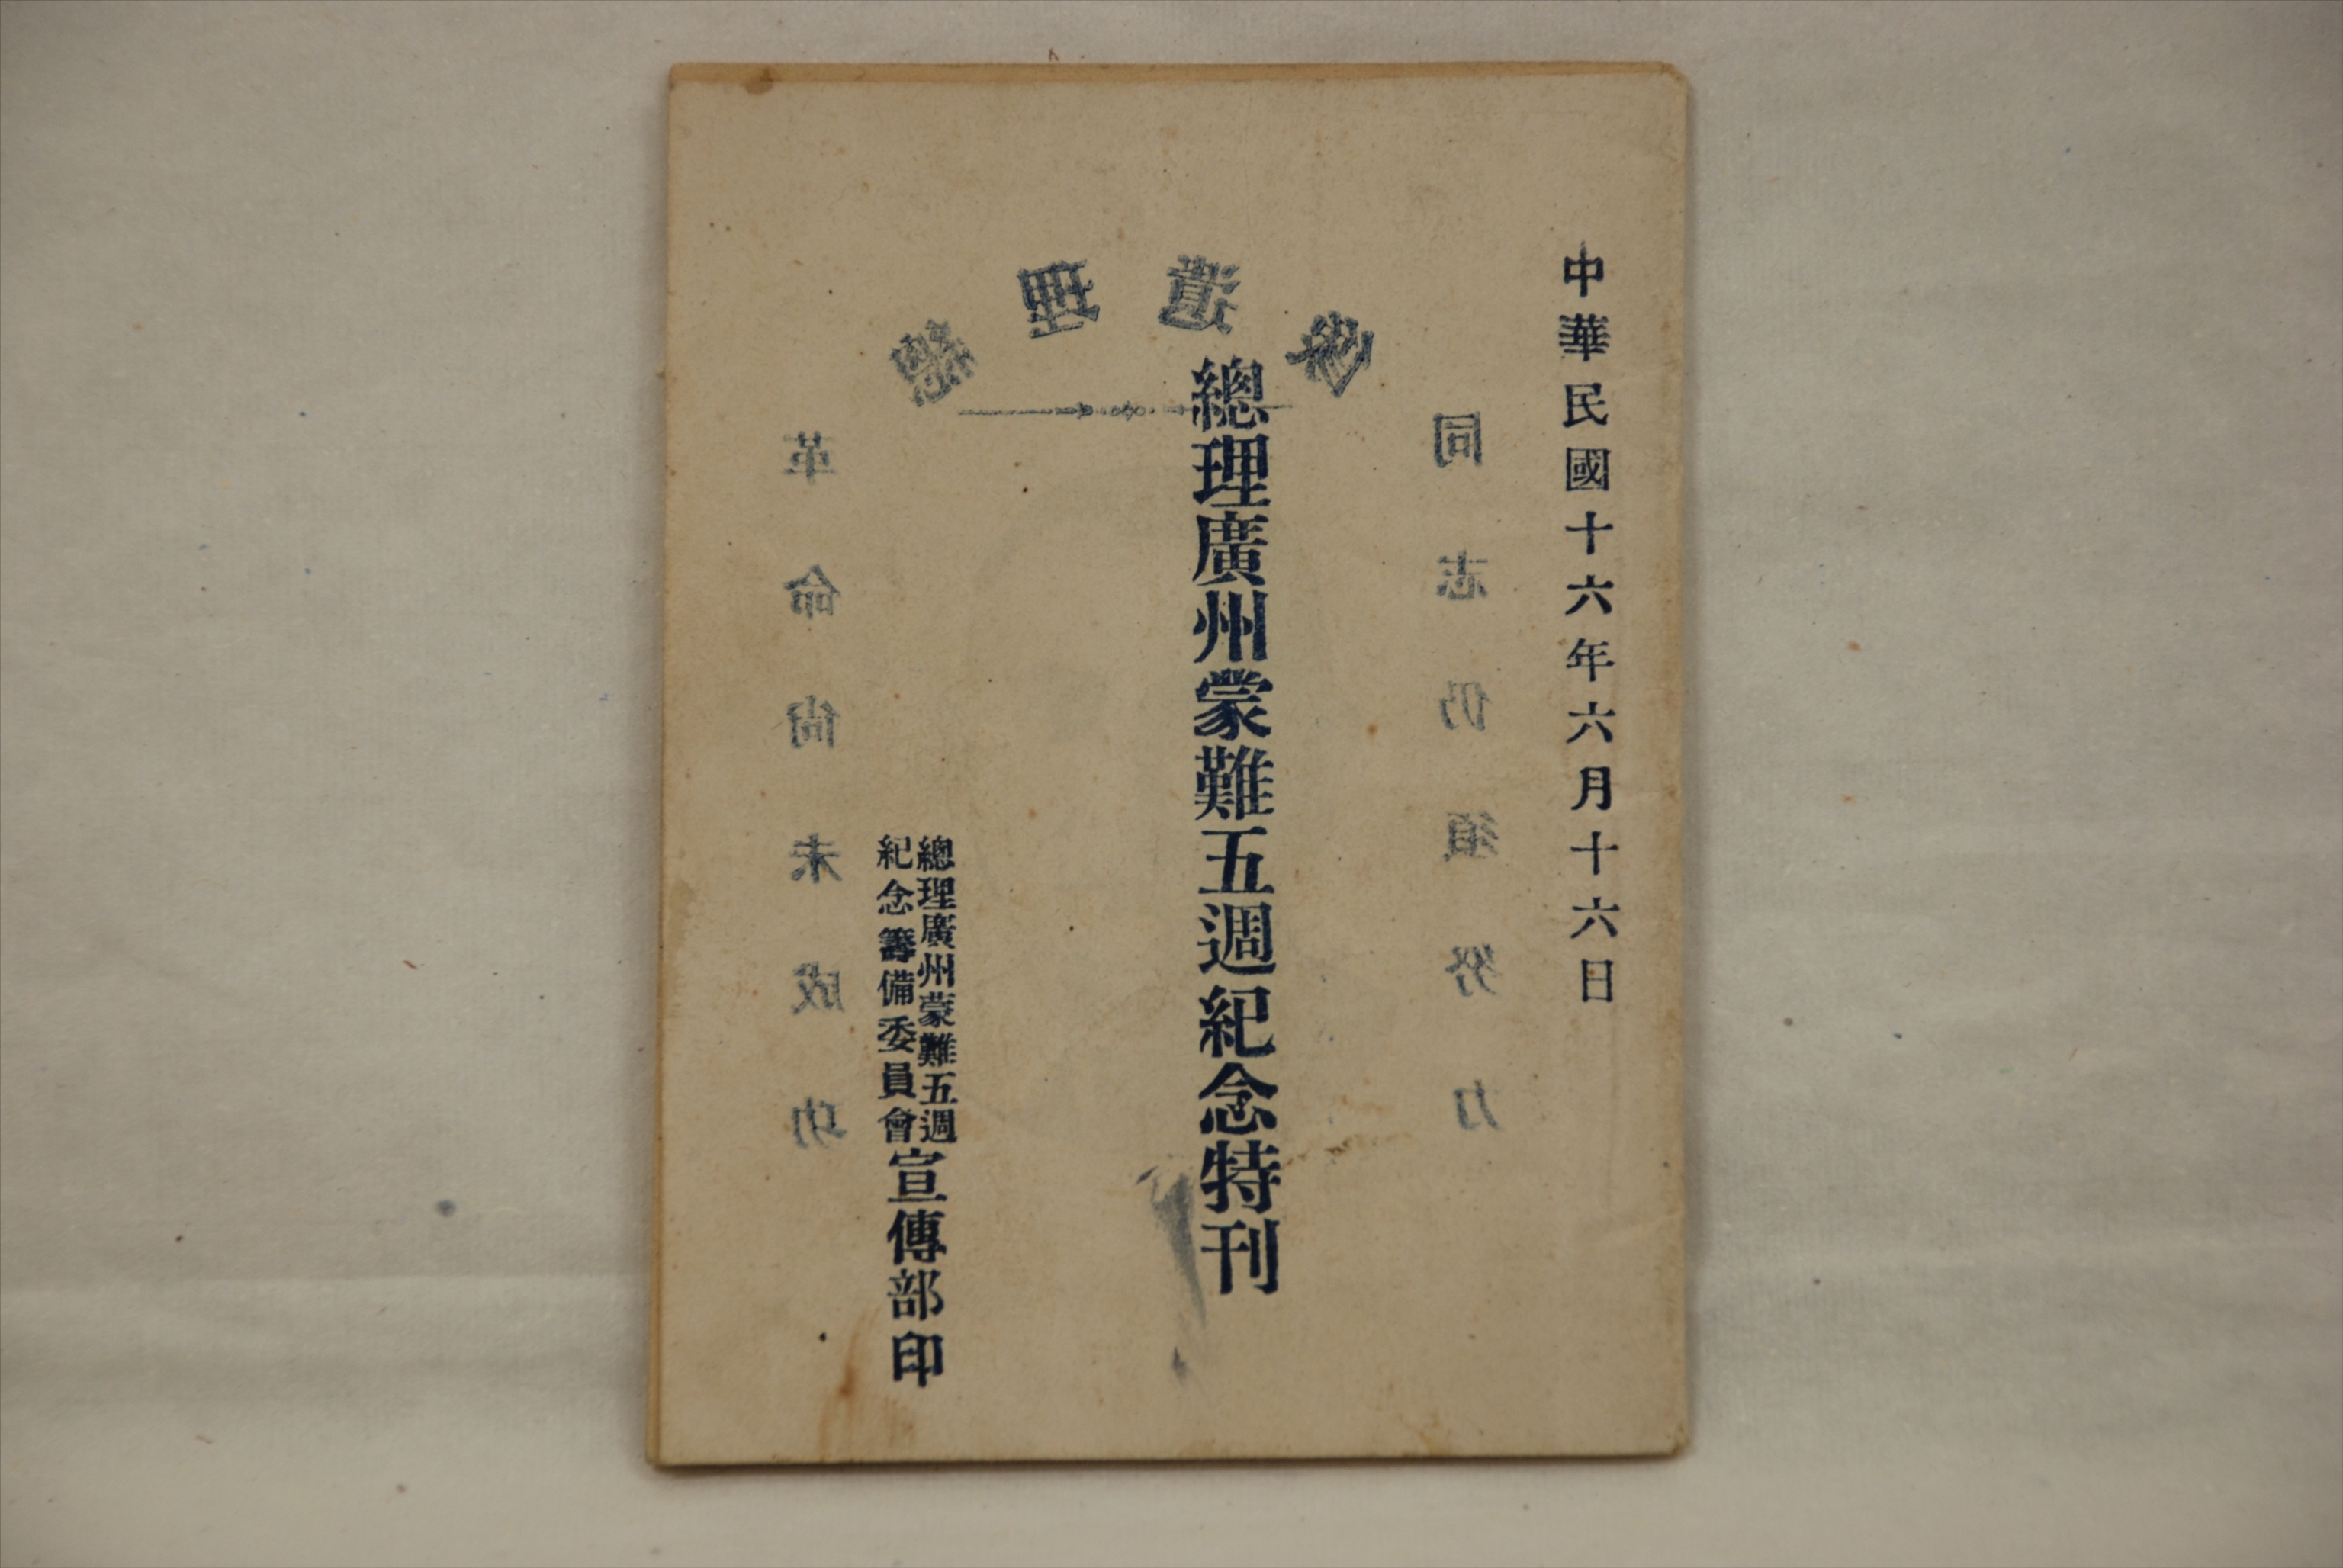 中華民國十六年六月十六日
總理廣州蒙難五週紀念特刊
總理廣州蒙難五週
紀念籌備委員會
宣傳部印
總理遺像
革命尚未成功
同志仍須努力